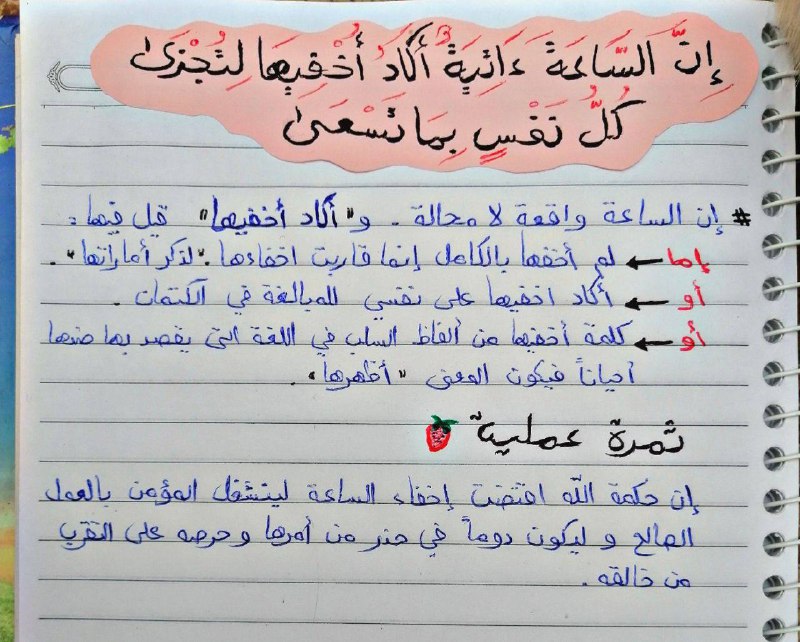 إِنَّ السَّاعَةَ ءَاتِيَةٌ أَكَادُ أُخْفِيهَا لِتُجْزَىٰ
كُلُّ نَفْسٍ بِمَا تَسْعَىٰ
# إن الساعة واقعة لا محالة. و "أكاد أخفيها" قيل فيها:
إما ← لم أخفها بالكامل إنما قاربت اخفاءها "لذكر أماراتها".
أو ← أكاد اخفيها على نفسي للمبالغة في الكتمان.
أو ← كلمة أخفيها من ألفاظ السلب في اللغة التي يقصد بها ضدها
أحياناً فيكون المعنى "أظهرها".
ثمرة عملية
إن حكمة الله اقتضت إخفاء الساعة لينشغل المؤمن بالعمل
الصالح و ليكون دوماً في حذر من أمرها وحرصه على التقرب
من خالقه.